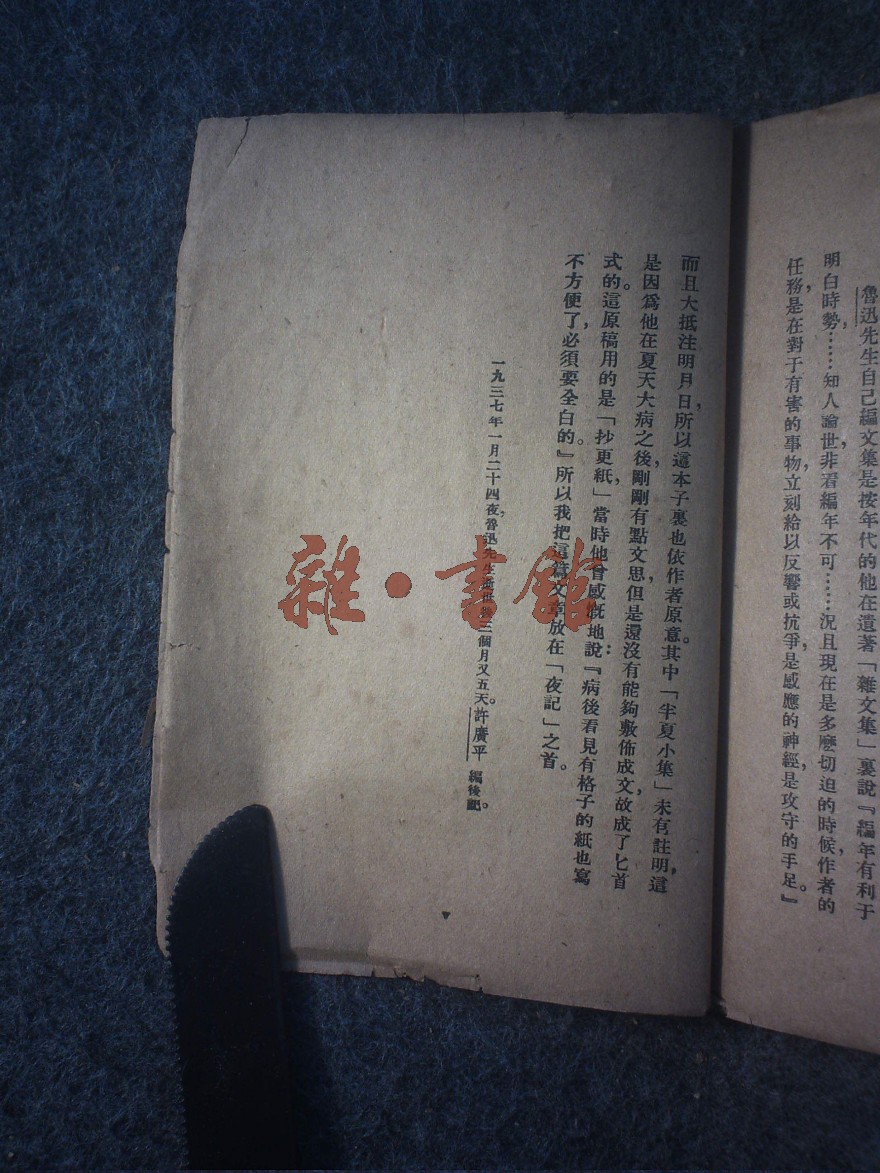 魯迅先生自己編文集是按年代的他在遺著「雜文集」裏說『編年有利于
明白時勢，……知人論世，非看編年不可……況且現在是多麽切迫的時候，作者的
任務，是在對于有害的事物，立刻給以反響或抗爭，是感應的神經，是攻守的手足。』
而且大抵注明月日，所以這本子裏也依作者原意。其中「半夏小集」未有註明，這
是因爲他在夏天大病之後，剛剛有點文思，但是還沒有能夠敷佈成文，故成了匕首
式的。這原稿用的是「抄更紙」，當時他曾感慨地說：『病後看見有格子的紙也寫
不方便了，必須要全白的。』所以我把這篇文章放在「夜記」之首。
一九三七年一月二十四夜，魯迅先生逝世後三個月又五天。許廣平 編後記。
雜·書館